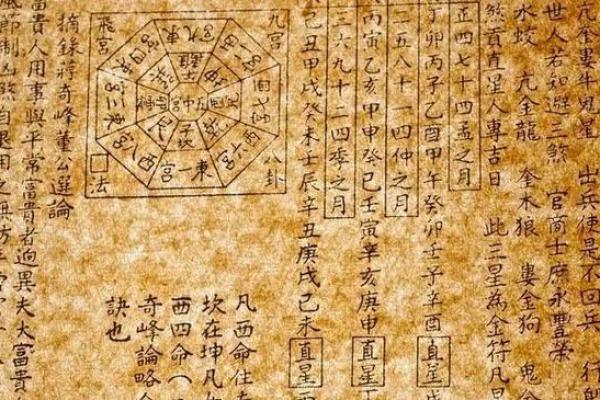 亢奎婁牛鬼星 出兵便是不回兵 行
世人若知避三煞 官商士庶永豐榮
水蛟 亢金龍 奎木狼 婁金狗 鬼金
煞貢直星人專吉日 此三星為金符凡
正四七十四孟之月
丁卯丙子乙酉甲午癸卯壬子辛酉 直星
二五八十一四仲之月
丙寅乙亥甲申癸巳壬寅辛亥庚申 直星
三六九十二四季之月
丑甲戌癸未壬辰辛丑庚戌己未 直星
九宮
八卦
飛宮
□法
凡西命住
坎在坤凡
西四命
奇峰論略
訣也
摘錄蔣奇峰董公選論
富貴人用事與平常富貴者迥異夫大富貴